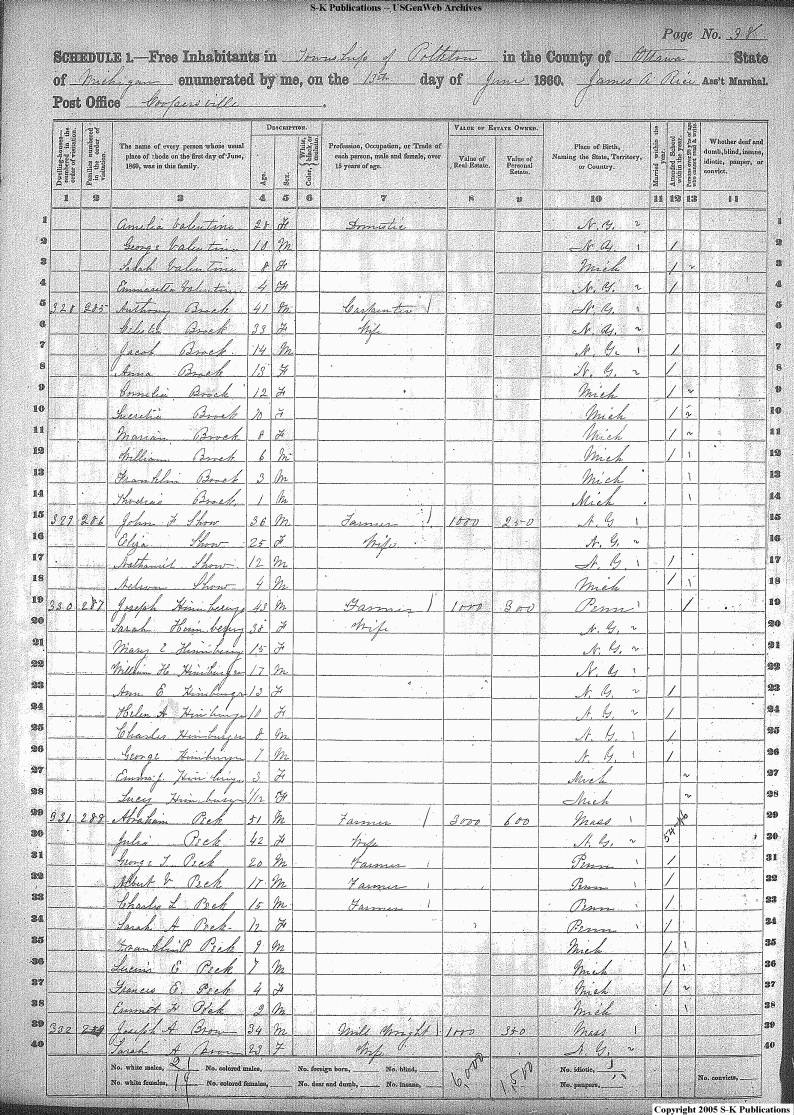 S-K Publications -- USGenWeb Archives
Page No. 38
SCHEDULE 1.—Free Inhabitants in Township of Polkton in the County of Ottawa State
of Michigan enumerated by me, on the 13th day of June 1860. James A Rice Ass't Marshal.
Post Office Coopersville
Dwelling-houses— numbered in the order of visitation.
Families numbered in the order of visitation.
The name of every person whose usual place of abode on the first day of June, 1860, was in this family.
DESCRIPTION.
Age.
Sex.
Color, White, black, or mulatto.
Profession, Occupation, or Trade of each person, male and female, over 15 years of age.
VALUE OF ESTATE OWNED.
Value of Real Estate.
Value of Personal Estate.
Place of Birth, Naming the State, Territory, or Country.
Married within the year.
Attended School within the year.
Persons over 20 y'rs of age who cannot read & write.
Whether deaf and dumb, blind, insane, idiotic, pauper, or convict.
1 2 3 4 5 6 7 8 9 10 11 12 13 14
1 Amelia Valentine 28 F Domestic N.Y. 1
2 George Valentine 10 M N.Y. / 2
3 Sarah Valentine 8 F Mich / 3
4 Valentine 4 F N.Y. / 4
5 328 285 Anthony Brock 41 M Carpenter N.Y. 5
6 Celestia Brock 33 F Wife N.Y. 6
7 Jacob Brock 14 M N.Y. / 7
8 Anna Brock 13 F N.Y. / 8
9 Cornelia Brock 12 F Mich / 9
10 Lucretia Brock 10 F Mich / 10
11 Marian Brock 8 F Mich / 11
12 William Brock 6 M Mich / 12
13 Franklin Brock 3 M Mich 13
14 Brock 1 M Mich 14
15 329 286 John F Show 36 M Farmer 1000 250 N.Y. 15
16 Eliza Show 25 F Wife N.Y. 16
17 Nathaniel Show 12 M N.Y. / 17
18 Nelson Show 4 M Mich / 18
19 330 287 Joseph Himebergy 43 M Farmer 1000 300 Penn / 19
20 Sarah 38 F Wife N.Y. 20
21 Mary E 15 F N.Y. 21
22 William H 17 M N.Y. 22
23 Ann E 13 F N.Y. / 23
24 Helen A 10 F N.Y. / 24
25 Charles 8 M N.Y. / 25
26 George 7 M N.Y. / 26
27 Emma J 3 F Mich 27
28 Lucy 1/12 F Mich 28
29 331 288 Abraham Peck 51 M Farmer 3000 600 Mass 29
30 Julia Peck 42 F Wife N.Y. 30
31 George L Peck 20 M Farmer Penn / 31
32 Albert V Peck 17 M Farmer Penn / 32
33 Charles L Peck 15 M Farmer Penn / 33
34 Sarah A Peck 12 F Penn / 34
35 Franklin P Peck 9 M Mich / 35
36 Lucius E Peck 7 M Mich / 36
37 Francis E Peck 4 F Mich / 37
38 Emmet F Peck 2 M Mich 38
39 332 289 Joseph A Brown 34 M Mill Wright 1000 350 Mass 39
40 Sarah A Brown 23 F Wife N.Y. 40
No. white males, 21 No. colored males, No. foreign born, No. blind, 6,000 1,500 No. idiotic,
No. white females, 19 No. colored females, No. deaf and dumb, No. insane, No. paupers, No. convicts,
Copyright 2005 S-K Publications